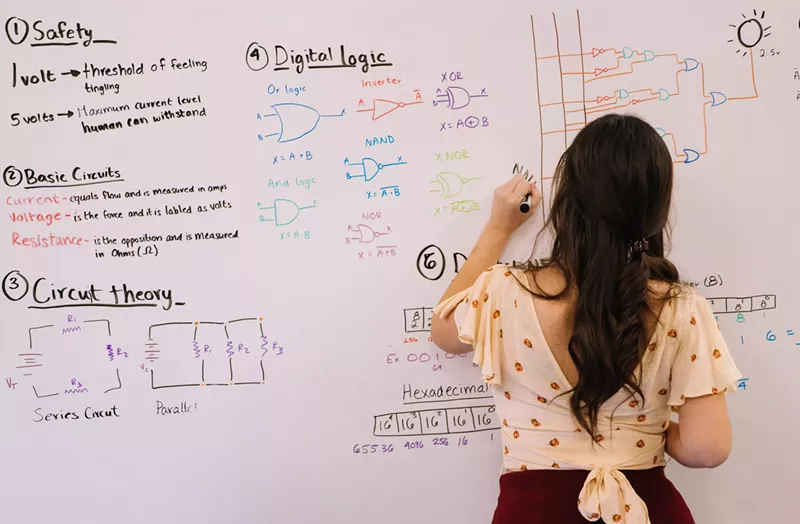 ① Safety
1 volt → threshold of feeling
tingling
5 volts → Maximum current level
human can withstand
② Basic Circuits
Current - equals flow and is measured in amps
Voltage - is the force and it is labled as volts
Resistance - is the opposition and is measured
in Ohms (Ω)
③ Circut theory
R₁
R₂
R₃
V_T
Series Circut
R₁
R₂
R₃
Parallel
④ Digital logic
Or logic
A
B
X
X = A + B
Inverter
A
A̅
XOR
A
B
X
X = A ⊕ B
NAND
A
B
X
X = A̅ ̅·̅ ̅B̅
And logic
A
B
X
X = A · B
X NOR
X = A̅ ̅⊕̅ ̅B̅
NOR
X = A̅+̅B̅
2.5v
⑥
(8)
8¹ 8⁰
8 1
1
6 =
Ex. 00
64
Hexadecimal
16⁴ 16³ 16² 16¹ 16⁰
65536 4096 256 16 1